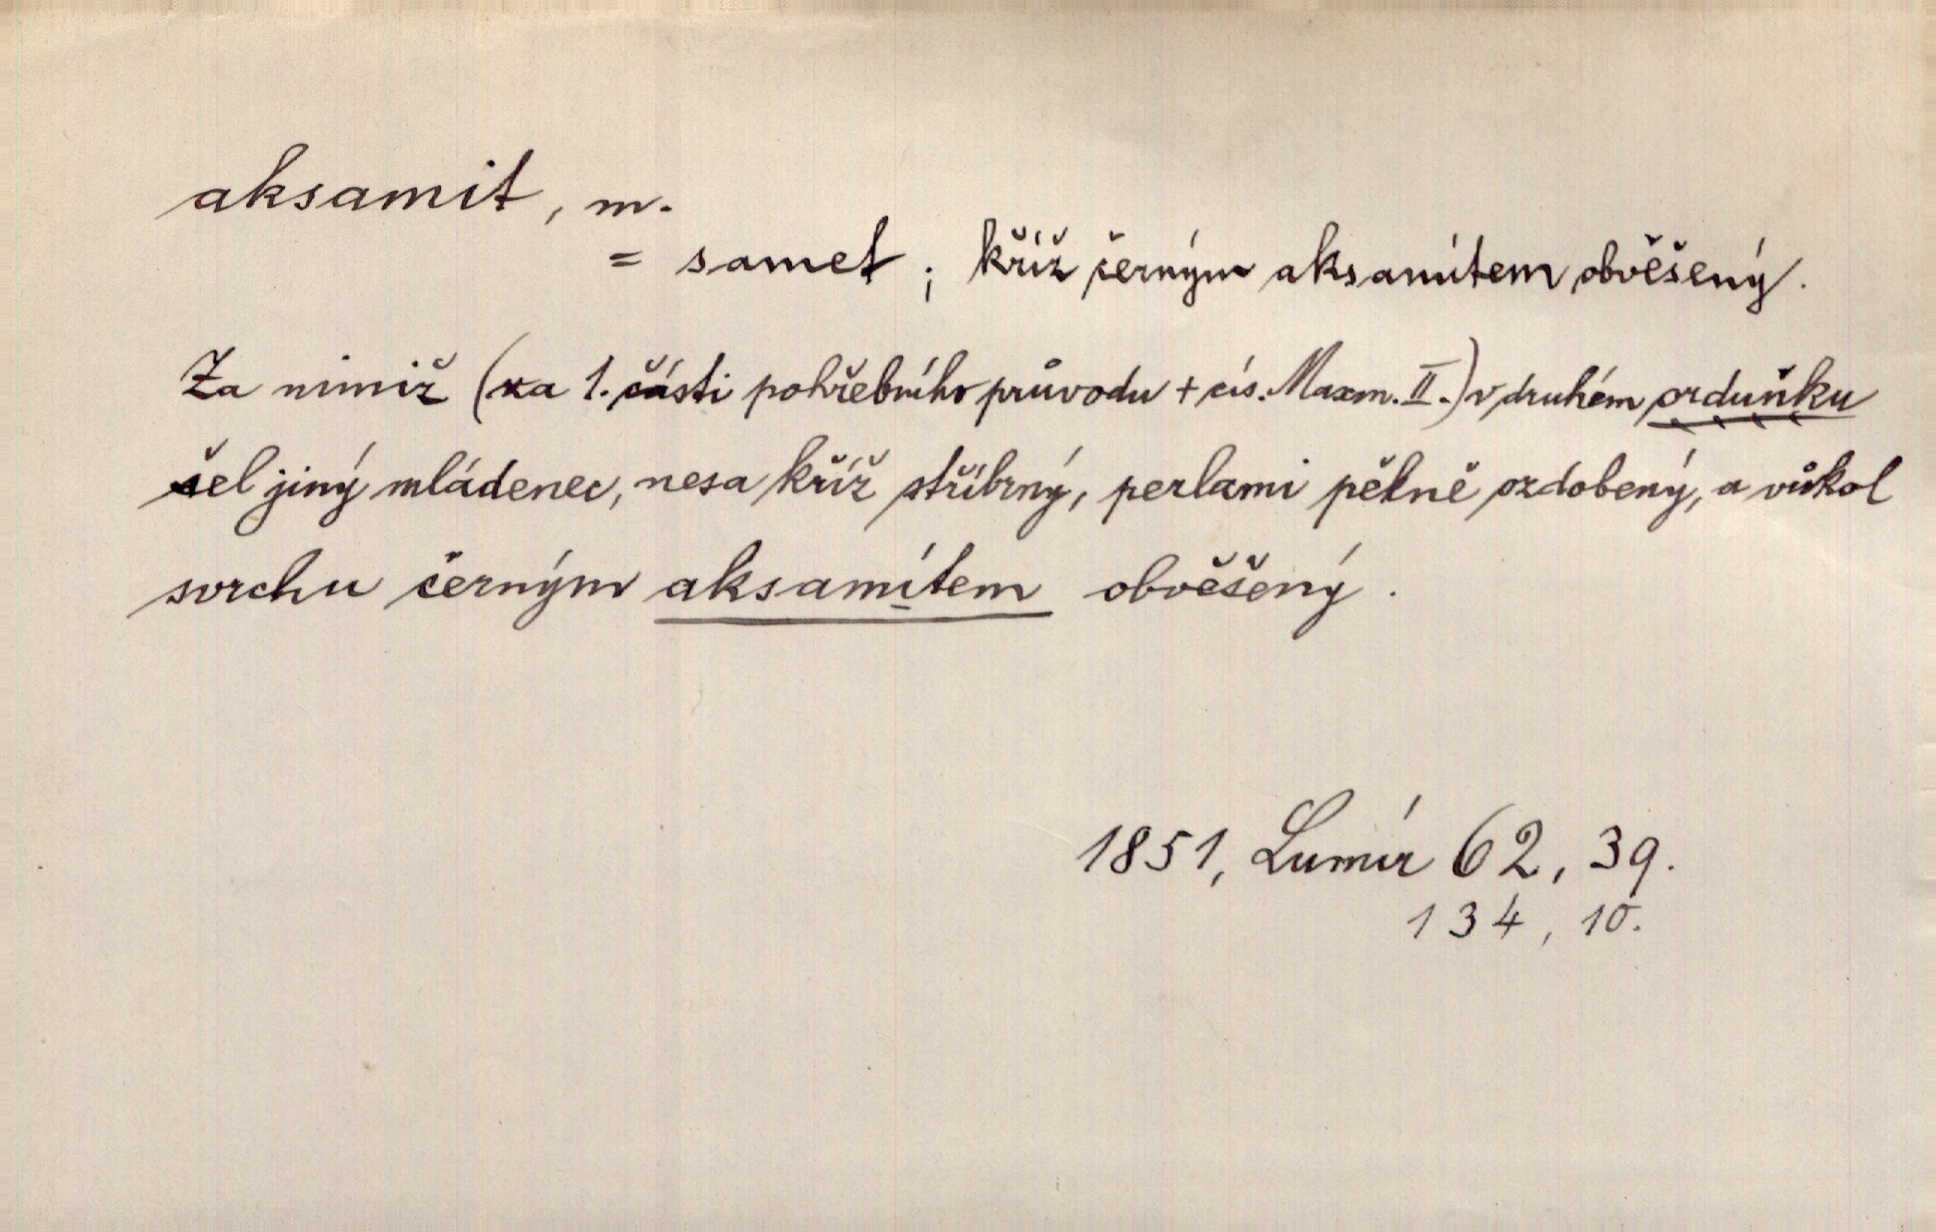 aksamit, m.
= samet; kříž černým aksamítem obvěšený.
Za nimiž (za 1. části pohřebního průvodu + cís. Maxm. II.) v druhém orduňku
šel jiný mládenec, nesa kříž stříbrný, perlami pěkně ozdobený, a vůkol
svrchu černým aksamítem obvěšený.
1851, Lumír 62, 39.
134, 10.